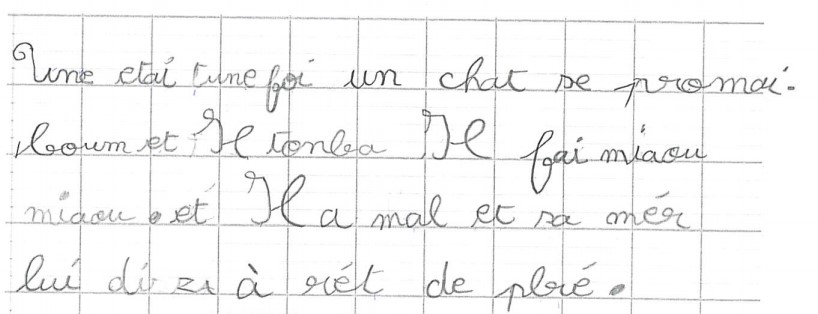 Une etai tune foi un chat se promai.
boum et Il tonba Il fai miaou
miaou . et Il a mal et sa mér
lui di à rét de pluré.